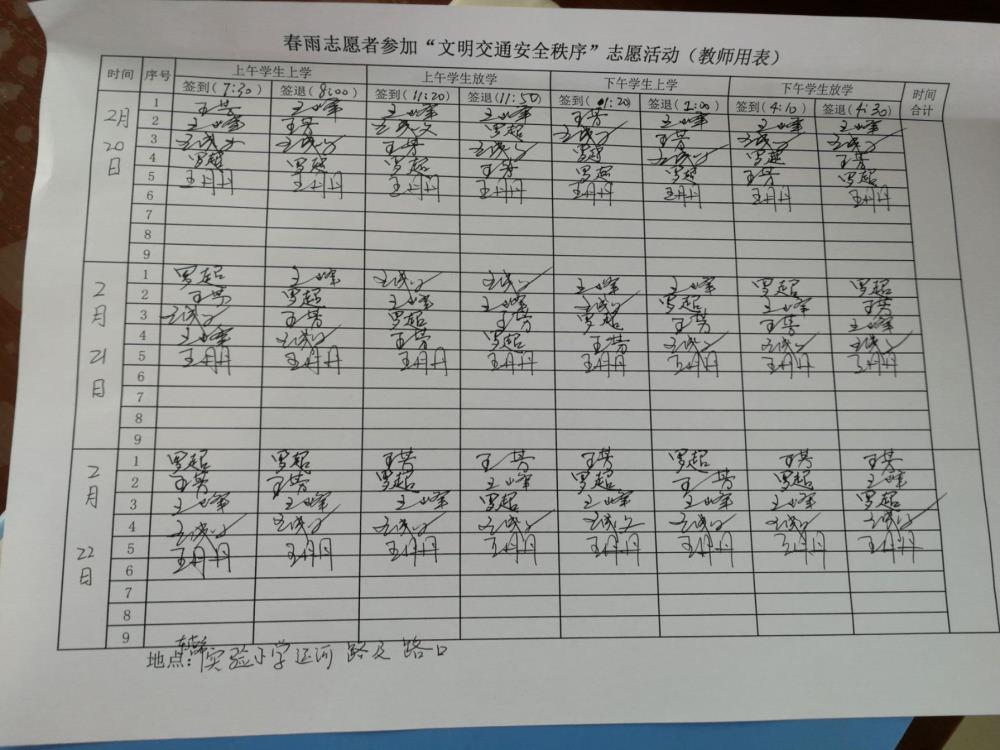 春雨志愿者参加“文明交通安全秩序”志愿活动（教师用表）
时间 序号 上午学生上学 上午学生放学 下午学生上学 下午学生放学 时间合计
签到(7:30) 签退(8:00) 签到(11:20) 签退(11:50) 签到(01:20) 签退(2:00) 签到(4:10) 签退(4:30)
2月20日
1 王芳 王峰 王峰 王峰 王芳 王峰 王峰 王峰
2 王峰 王芳 罗超
3 王芳 罗超 王芳 罗超 王芳
4 罗超 罗超 罗超 王芳 罗超 罗超 王芳 罗超
5 王丹丹 王丹丹 王丹丹 王丹丹 王丹丹 王丹丹 王丹丹 王丹丹
6
7
8
9
2月21日
1 罗超 王峰 王峰 王峰 罗超 罗超
2 王芳 罗超 王峰 王峰 罗超 王峰 王芳
3 王芳 罗超 王芳 罗超 王芳 王芳 王峰
4 王峰 王芳 罗超 王芳
5 王丹丹 王丹丹 王丹丹 王丹丹 王丹丹 王丹丹 王丹丹 王丹丹
6
7
8
9
2月22日
1 罗超 罗超 王芳 王芳 王芳 罗超 王芳 王芳
2 王芳 王芳 罗超 王峰 罗超 王芳 罗超 王峰
3 王峰 王峰 王峰 罗超 王峰 王峰 王峰 罗超
4
5 王丹丹 王丹丹 王丹丹 王丹丹 王丹丹 王丹丹 王丹丹 王丹丹
6
7
8
9
地点: 实验小学运河路 路口